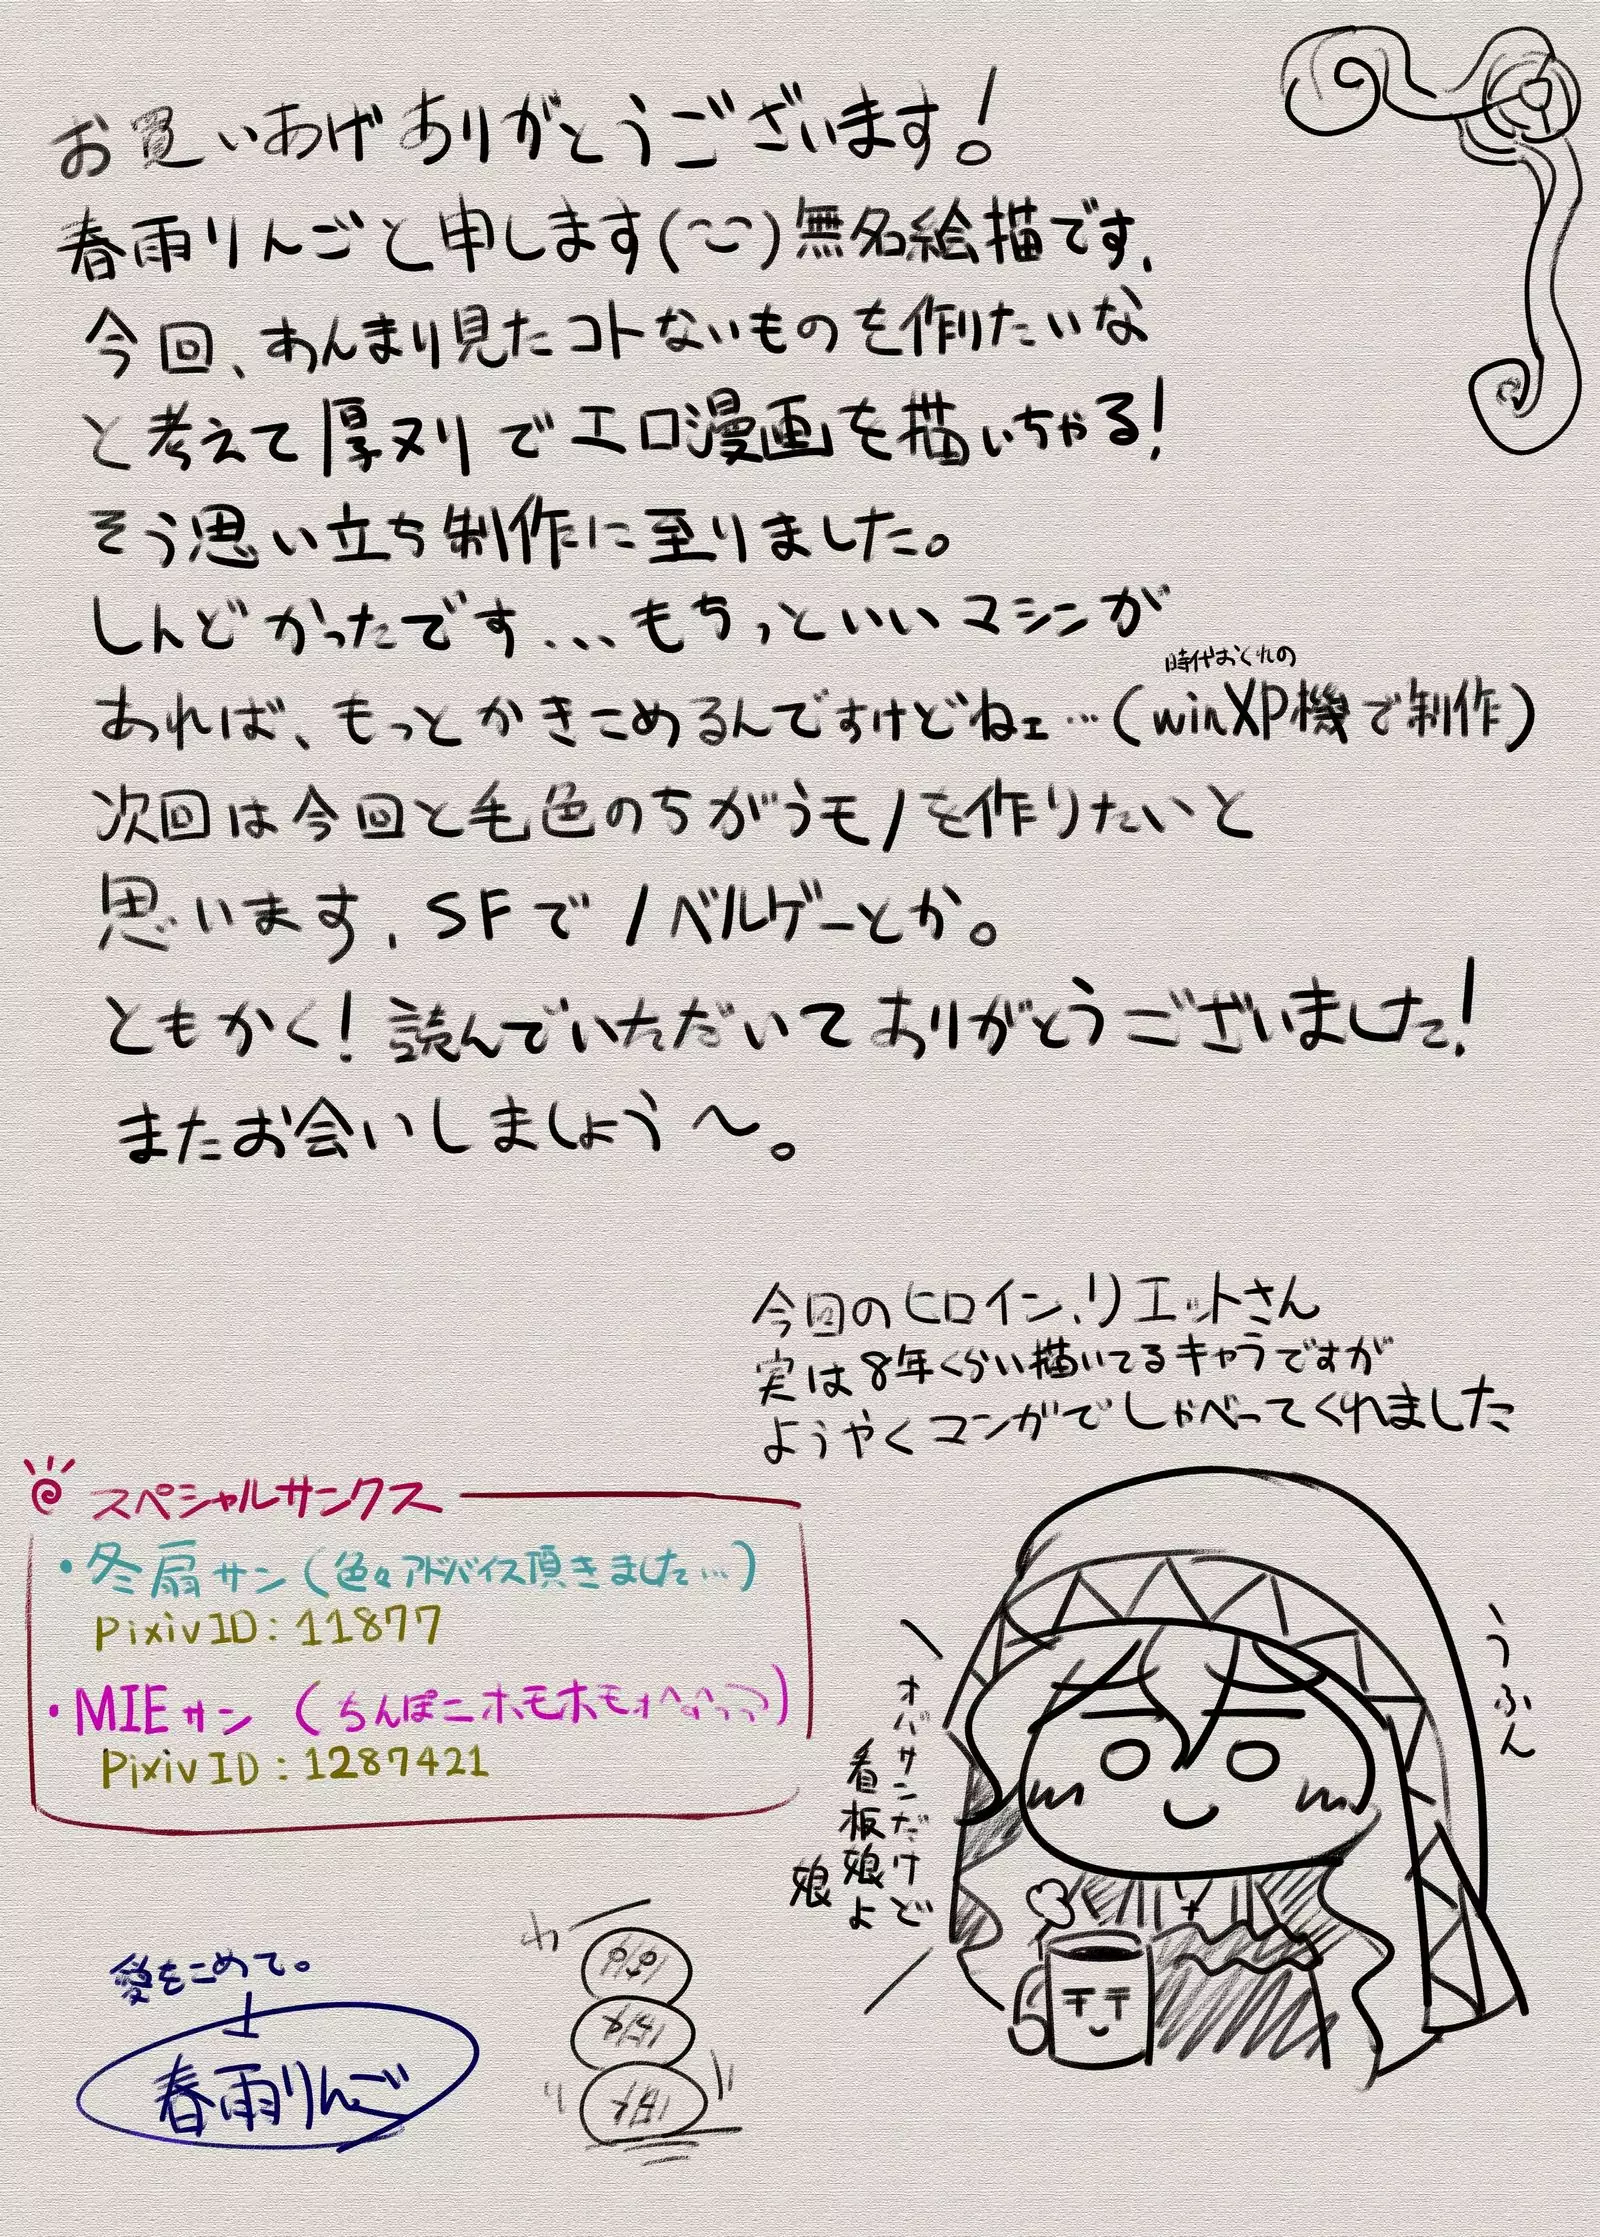 お買いあげありがとうございます！
春雨りんごと申します(~~)無名絵描です、
今回、あんまり見たコトないものを作りたいな
と考えて厚ヌリでエロ漫画を描いちゃる！
そう思い立ち制作に至りました。
しんどかったです...もちっといいマシンが
あれば、もっとかきこめるんですけどねェ…(winXP機で制作)
時代おくれの
次回は今回と毛色のちがうモノを作りたいと
思います、SFでノベルゲーとか。
ともかく！読んでいただいてありがとうございました！
またお会いしましょう～。
今回のヒロイン、リエットさん
実は8年くらい描いてるキャラですが
ようやくマンガでしゃべってくれました
スペシャルサンクス
・冬扇サン(色々アドバイス頂きました…)
PixivID:11877
・MIEサン(ちんぽニホモホモォ
PixivID:1287421
うふん
オバサンだけど
看板娘よ
娘
愛をこめて。
春雨りんご